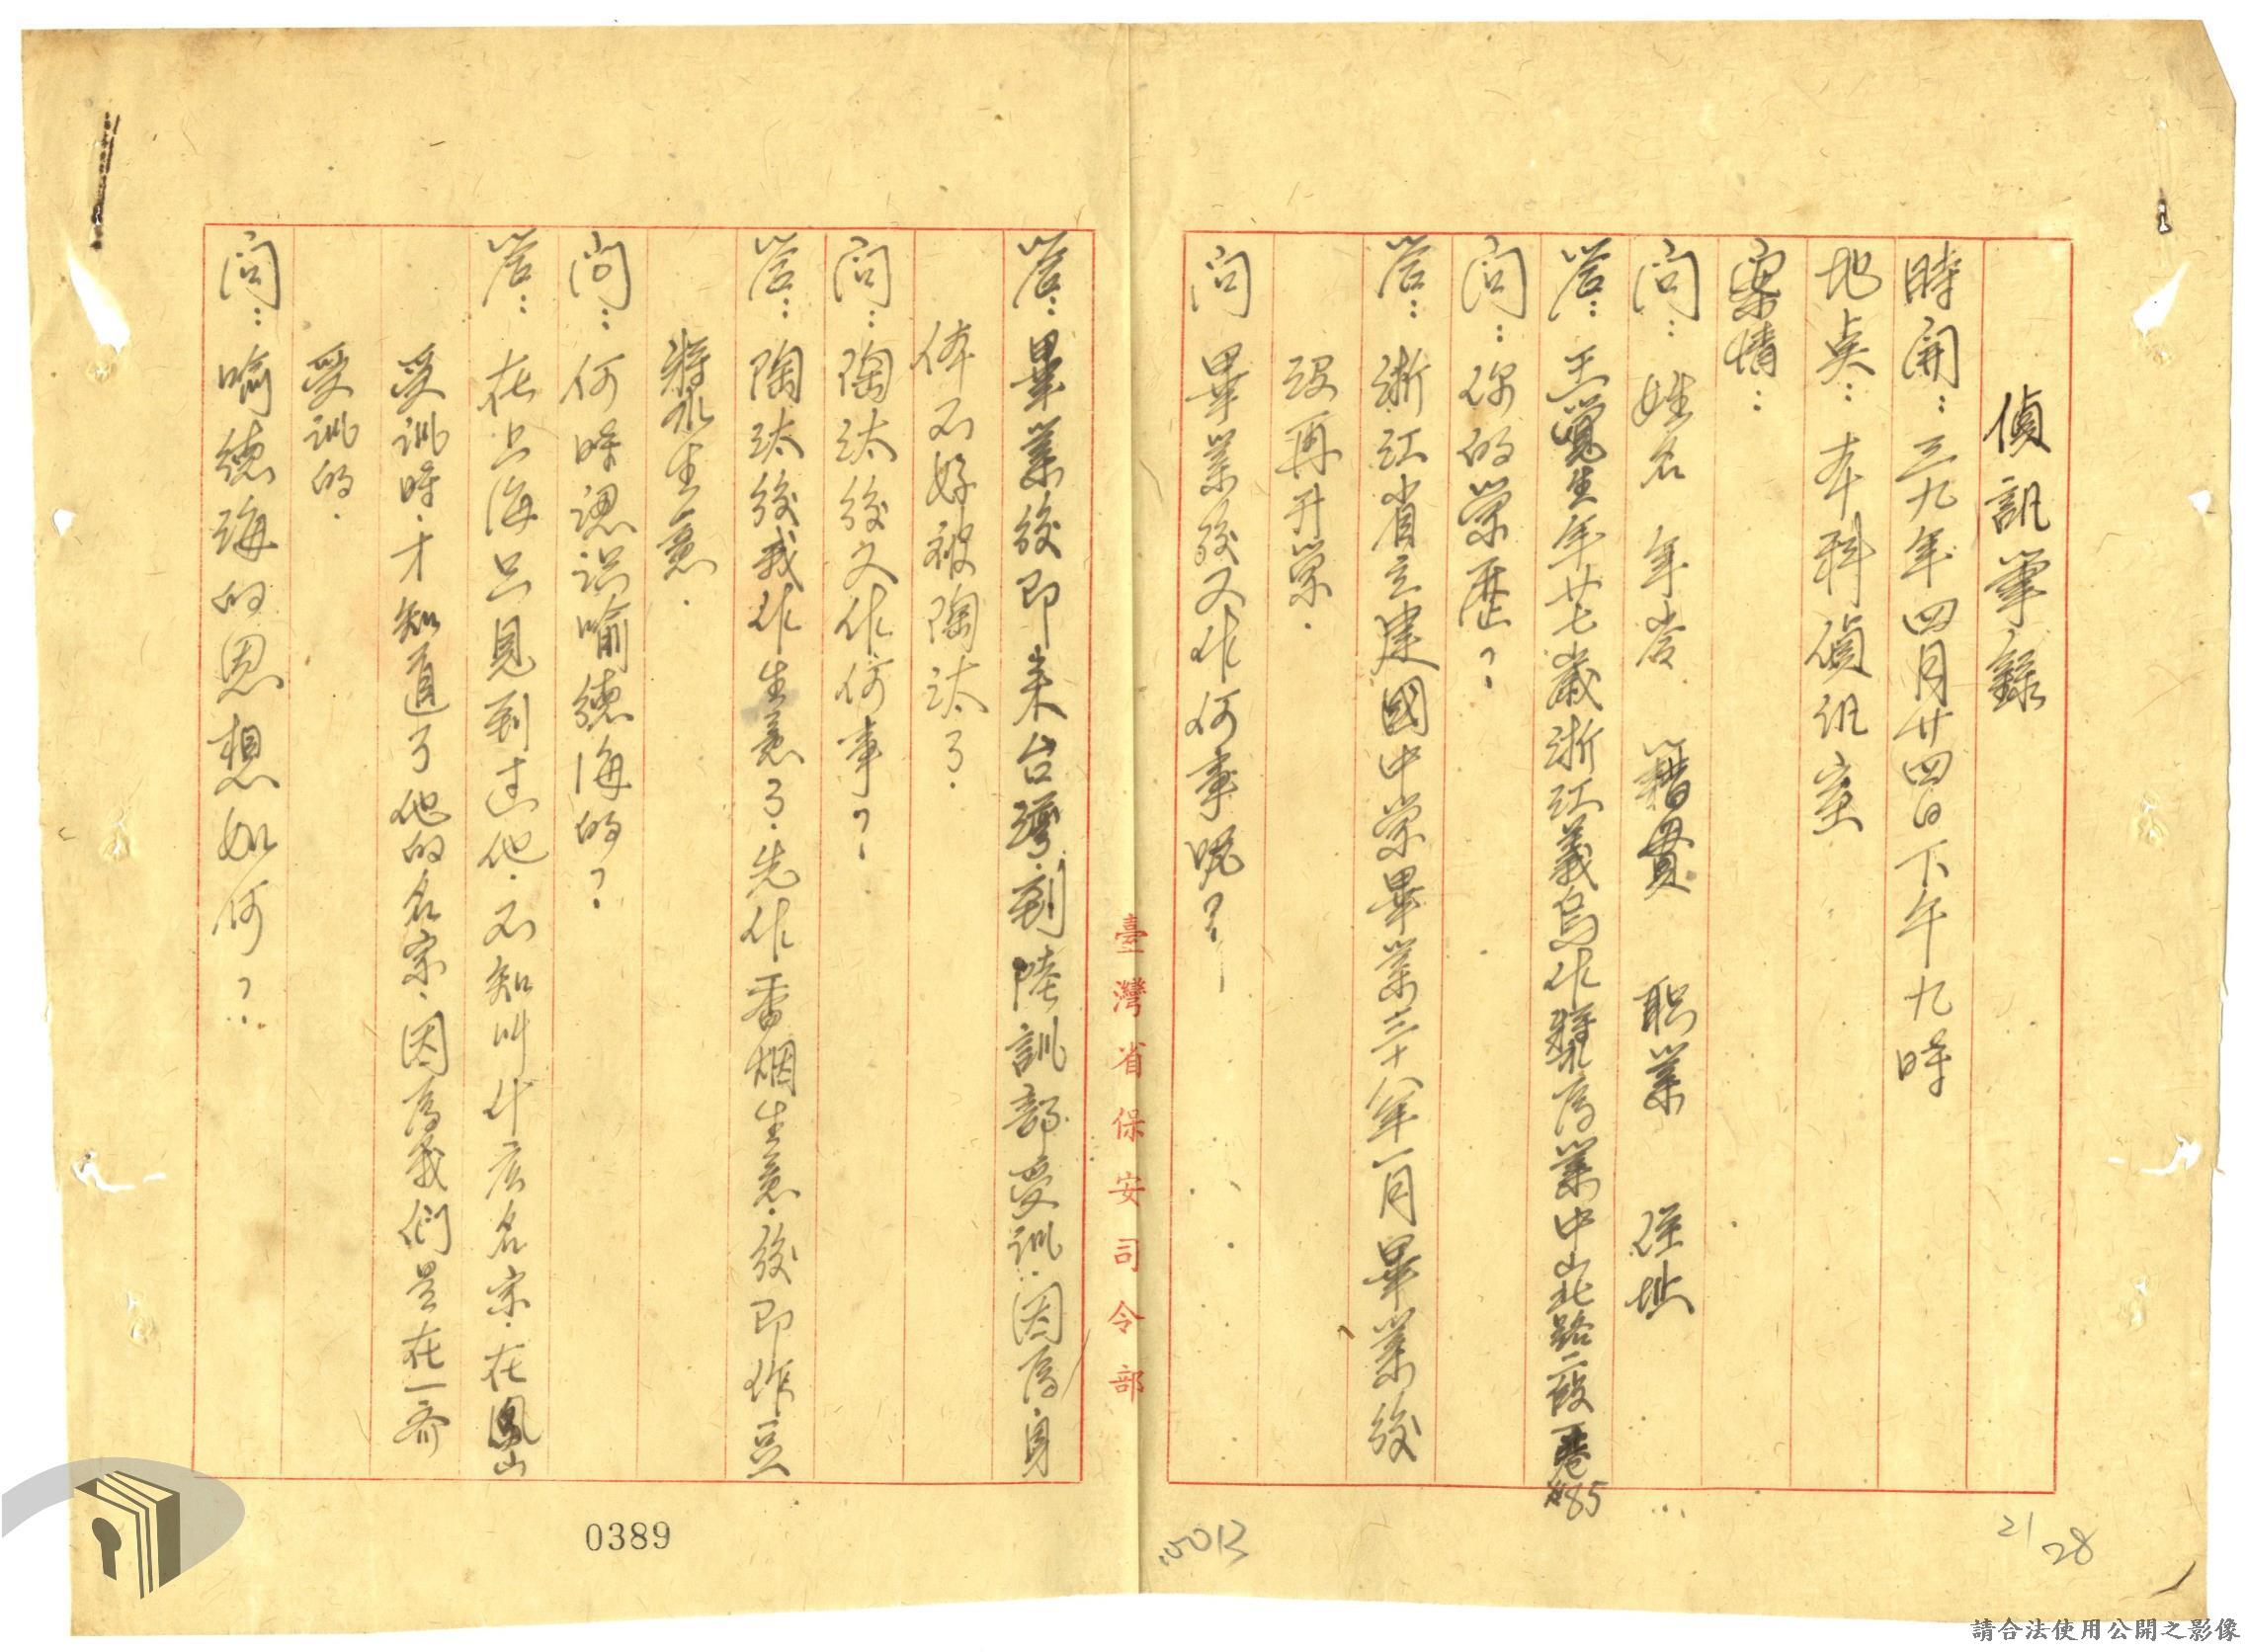 偵訊筆錄
時間：三九年四月廿四日下午九時
地点：本科偵讯室
案情：
问：姓名 年岁 籍貫 职業 住址
答：王覺生年廿七歲浙江義烏作漿為業中山北路二段 巷#85
问：你的学歷？
答：浙江省立建國中学畢業三十八年一月畢業後
没再升学．
问 畢業後又作何事呢？
臺灣省保安司令部
答：畢業後即来台灣．到陸訓部受训．因为身
体不好被陶汰了．
问：陶汰後又作何事？
答：陶汰後我作生意了．先作香烟生意．後即作豆
漿生意．
问：何時認识喻德海的？
答：在上海只見到过他．不知叫什広名字．在鳳山
受训時．才知道了他的名字．因为我们是在一齐
受训的．
问：喻德海的思想如何？
0389
5013
21
28
請合法使用公開之影像